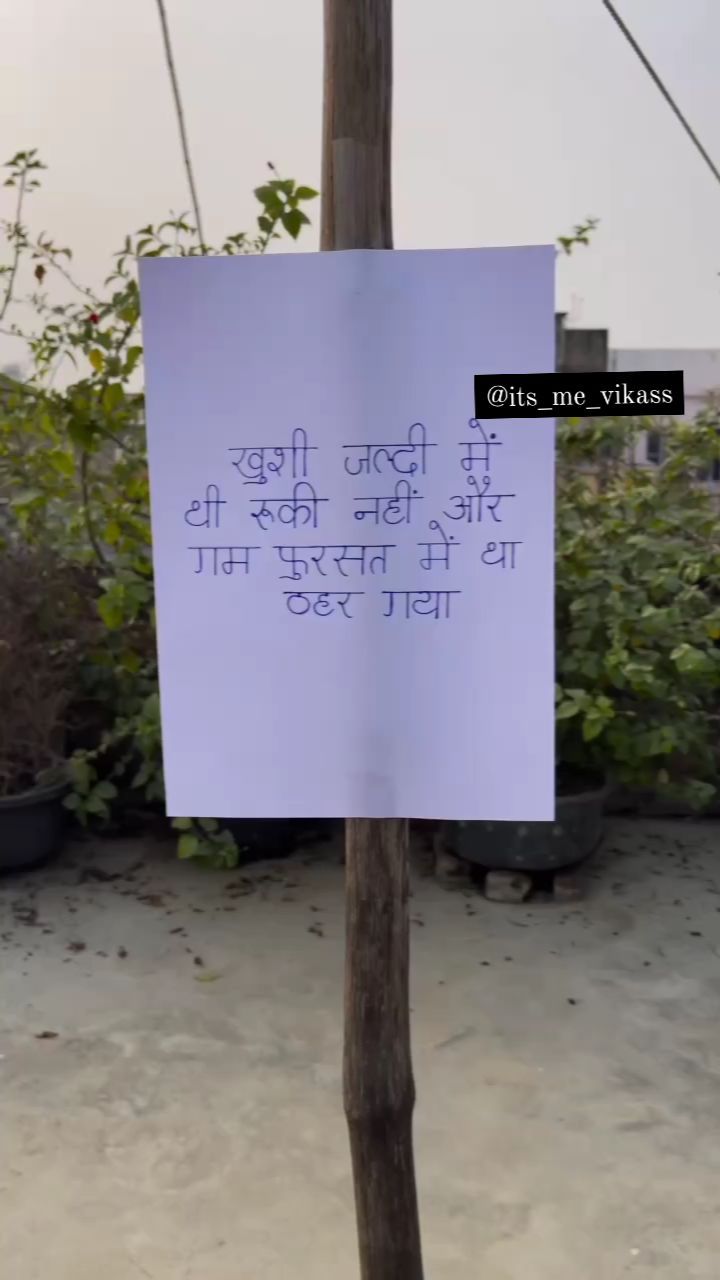 @its_me_vikass
खुशी जल्दी में
थी रूकी नहीं और
गम फुरसत में था
ठहर गया